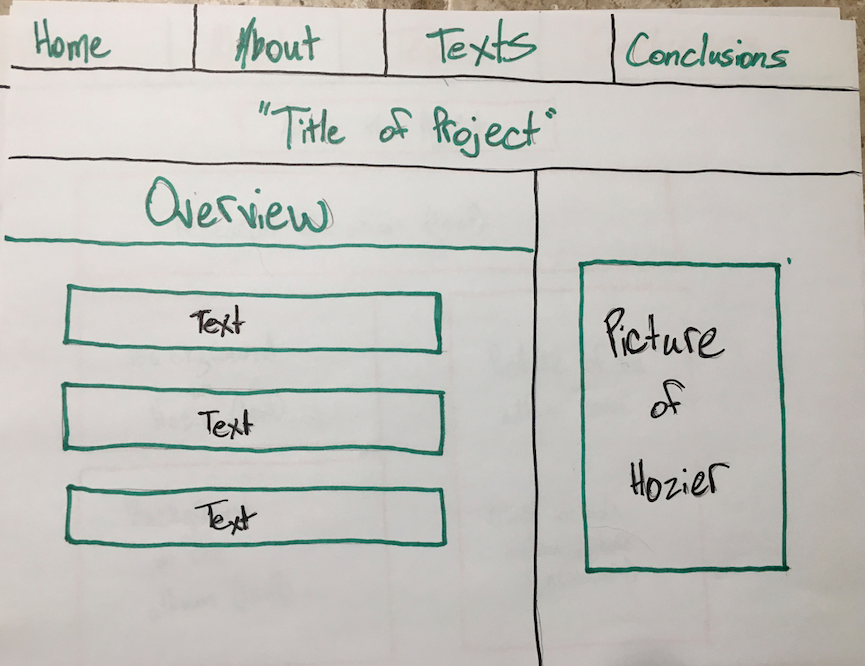 Home
About
Texts
Conclusions
"Title of Project"
Overview
Text
Text
Text
Picture
of
Hozier